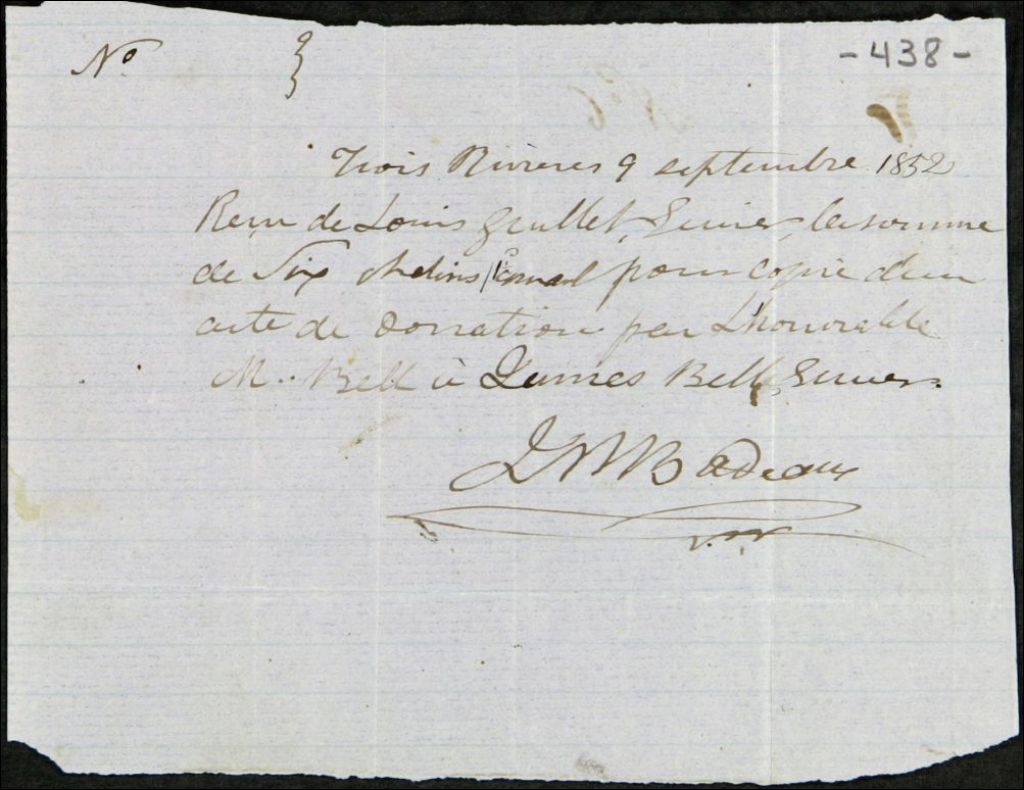 No
- 438 -
Trois Rivieres 9 septembre 1852
Recu de Louis Guillet, Ecuier, la somme
de Six chelins pour copie d'un
acte de donation par L'honorable
M. Bell à James Bell, Ecuier.
J M Badeaux
N.P.